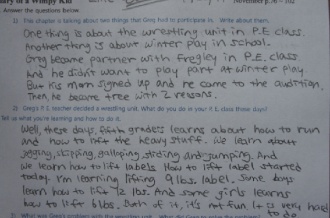 ary of a Wimpy Kid
November p.76 - 102
Answer the questions below.
1) This chapter is talking about two things that Greg had to participate in. Write about them.
One thing is about the wrestling unit in P.E. class.
Another thing is about winter play in school.
Greg become partner with Fregley in P.E. class
and he didn't want to play part at winter play
But his mom signed up and he came to the audition.
Then he became tree with 2 reasons.
2) Greg's P.E. teacher decided a wrestling unit. What do you do in your P.E. class these days?
Tell us what you're learning and how to do it.
Well, these days, fifth graders learns about how to run
and how to lift the heavy stuff. We learn about
jogging, skipping, galloping, striding and jumping. And
we learn how to lift labells. How to lift label started
today. I'm learning lifting 9 lbs. label. Some boys
learn how to lift 12 lbs. And some girls learns
how to lift 6 lbs. Both of it, it's not fun. It is very hard
to do